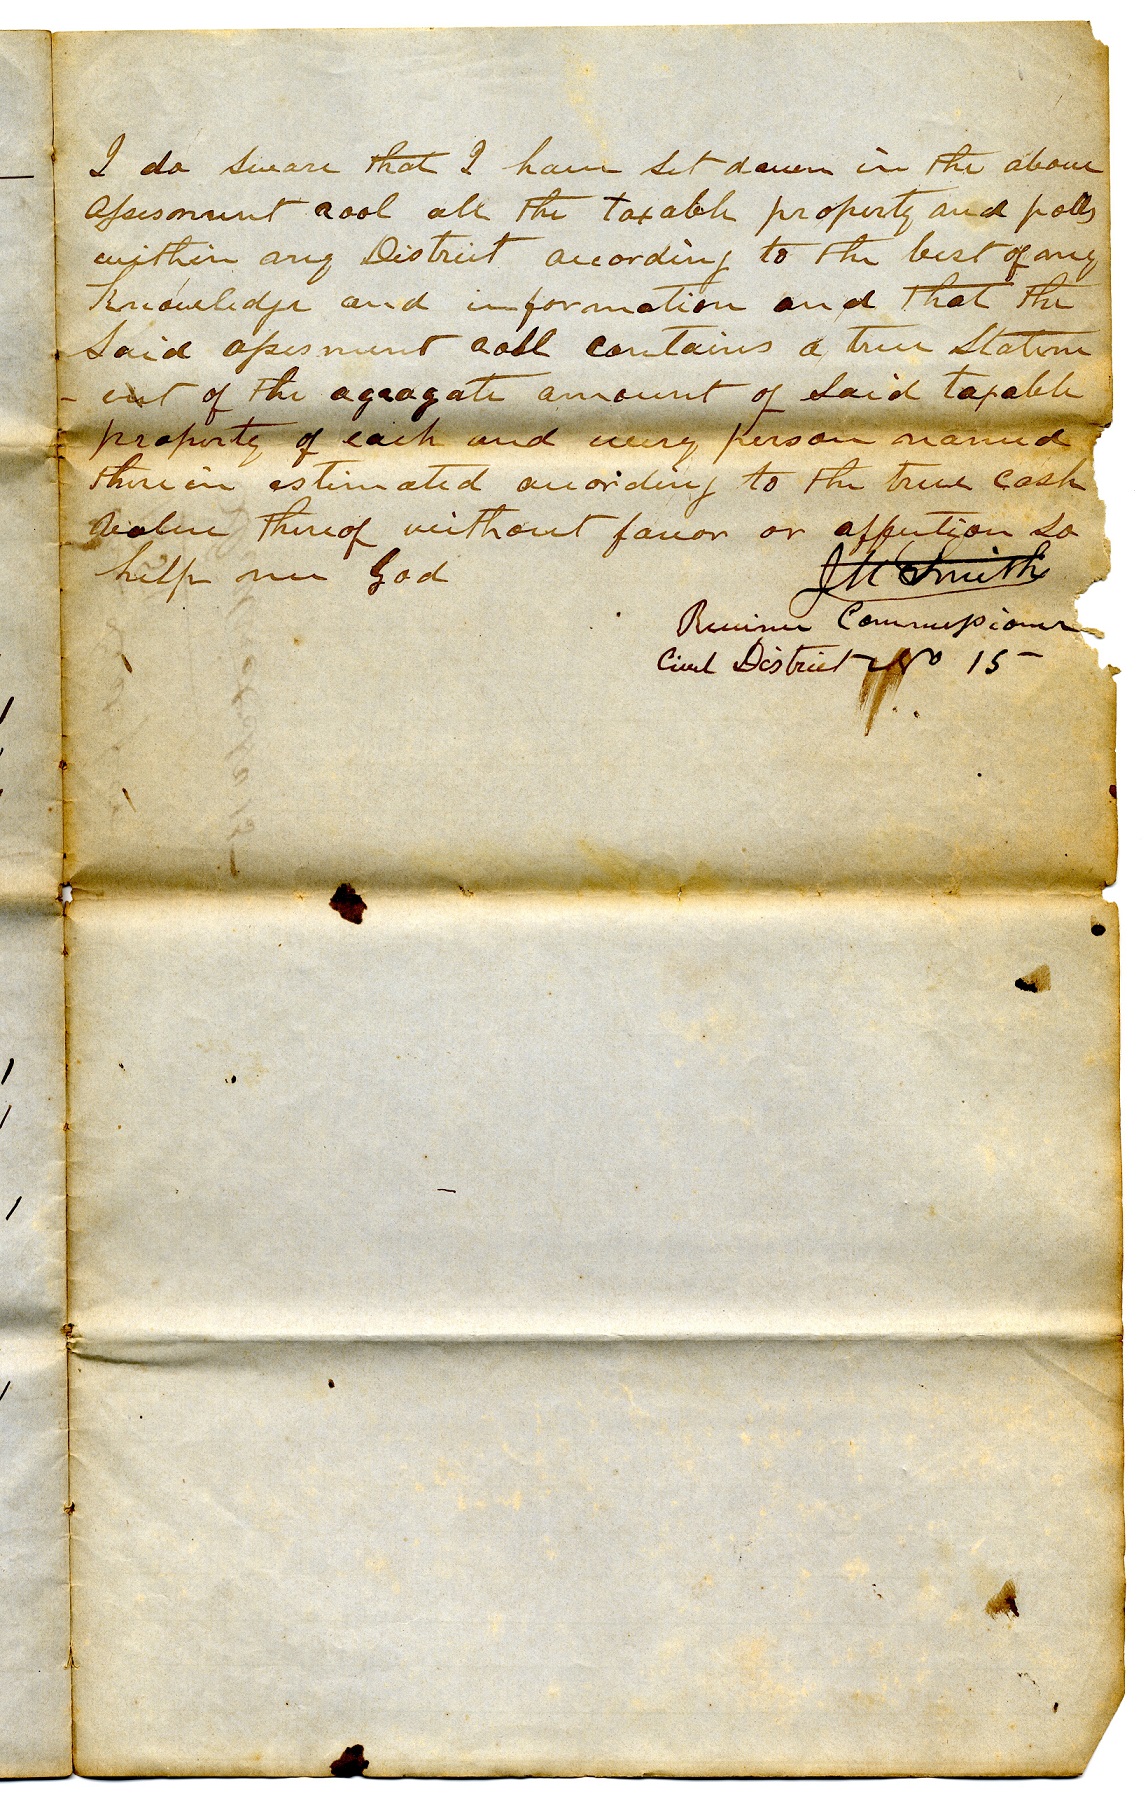 I do sware that I have set down in the above
assesment rool all the taxable property and polls
within my District according to the best of my
knowledge and information and that the
Said assesment roll contains a true Statem
-ent of the agragate amount of said taxable
property of each and every person named
therein estimated according to the true cash
value thereof without favor or affection so
help me God
J M Smith
Revinue Commissioner
Civil District No 15